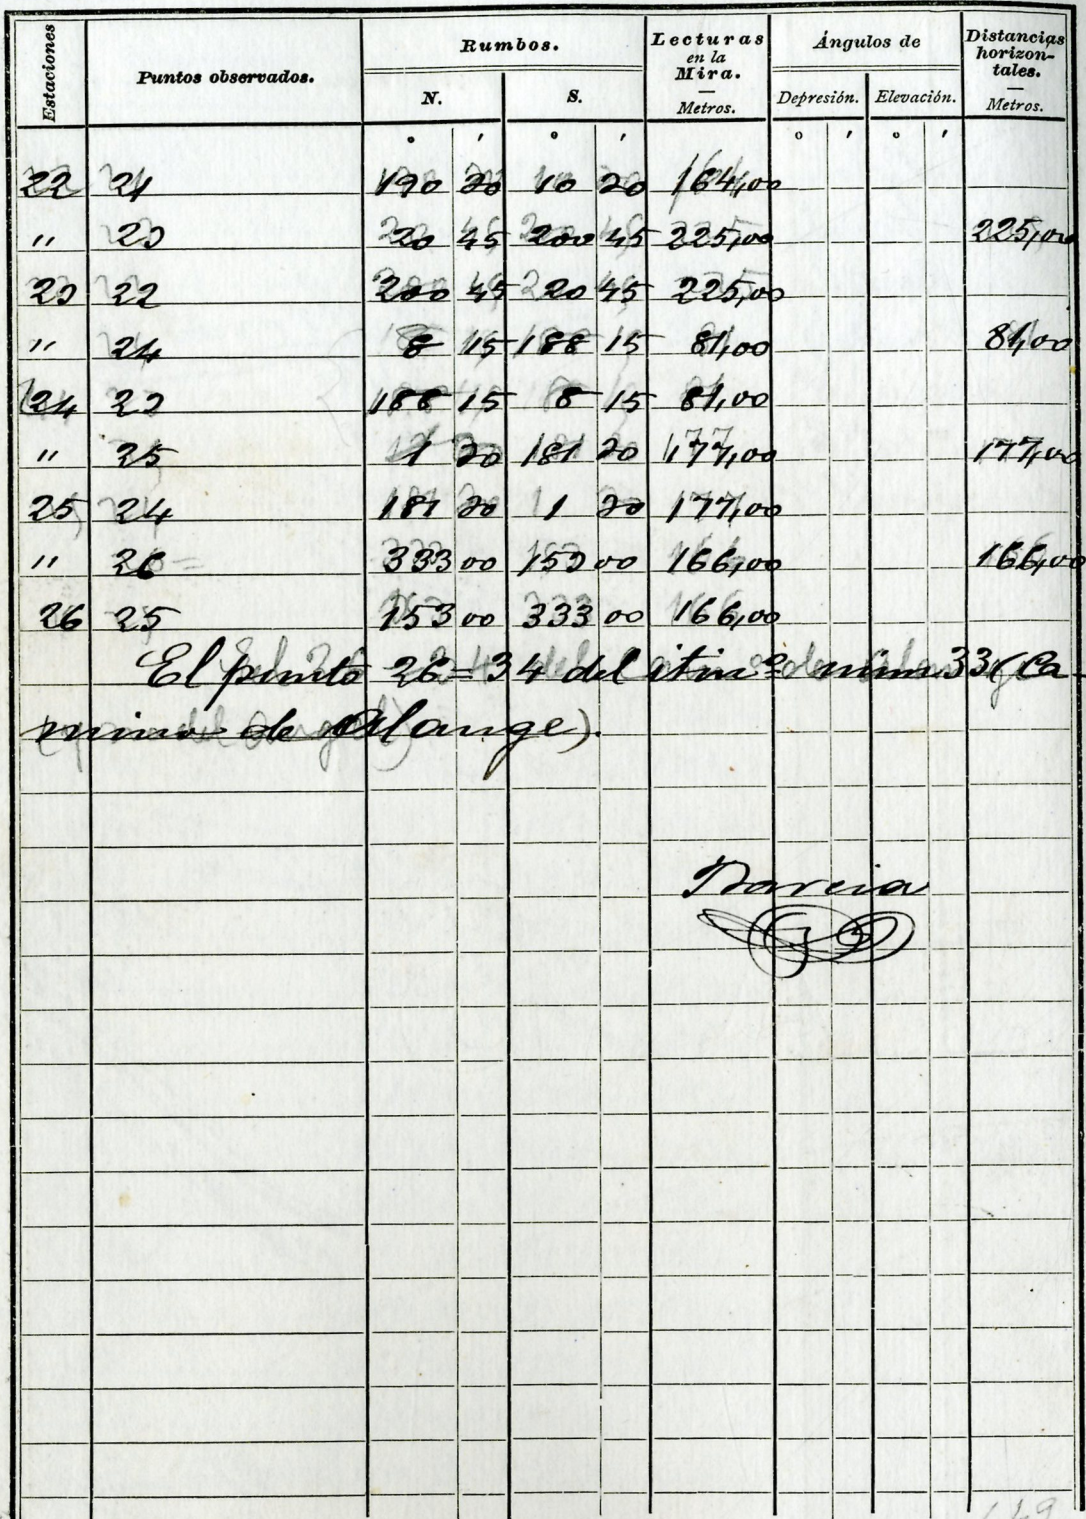 Estaciones Puntos observados. Rumbos. N. S. Lecturas en la Mira. — Metros. Ángulos de Depresión. Elevación. Distancias horizon- tales. — Metros.
° ′ ° ′ ° ′ ° ′
22 21 190 30 10 30 164,00
" 23 20 45 200 45 225,00 225,00
23 22 200 45 20 45 225,00
" 24 8 15 188 15 81,00 81,00
24 23 188 15 8 15 81,00
" 25 1 30 181 30 177,00 177,00
25 24 181 30 1 30 177,00
" 26 333 00 153 00 166,00 166,00
26 25 153 00 333 00 166,00
El punto 26 = 34 del itinº núm 33 (Ca-
mino de Alange).
149